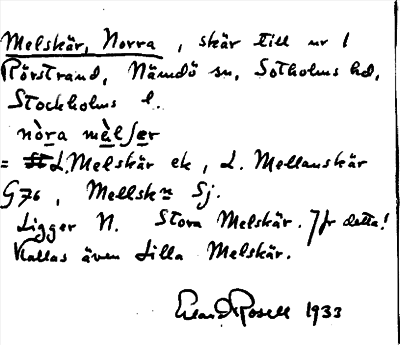 Melskär, Norra, skär till nr 1
Rörstrand, Nämdö sn, Sotholms hd,
Stockholms l.
nòra mèlʃer
= L. Melskär ek, L. Mellanskär
G76, Mellskn Sj.
Ligger N. Stora Melskär. Jfr detta!
Kallas även Lilla Melskär.
Erland Rosell 1933